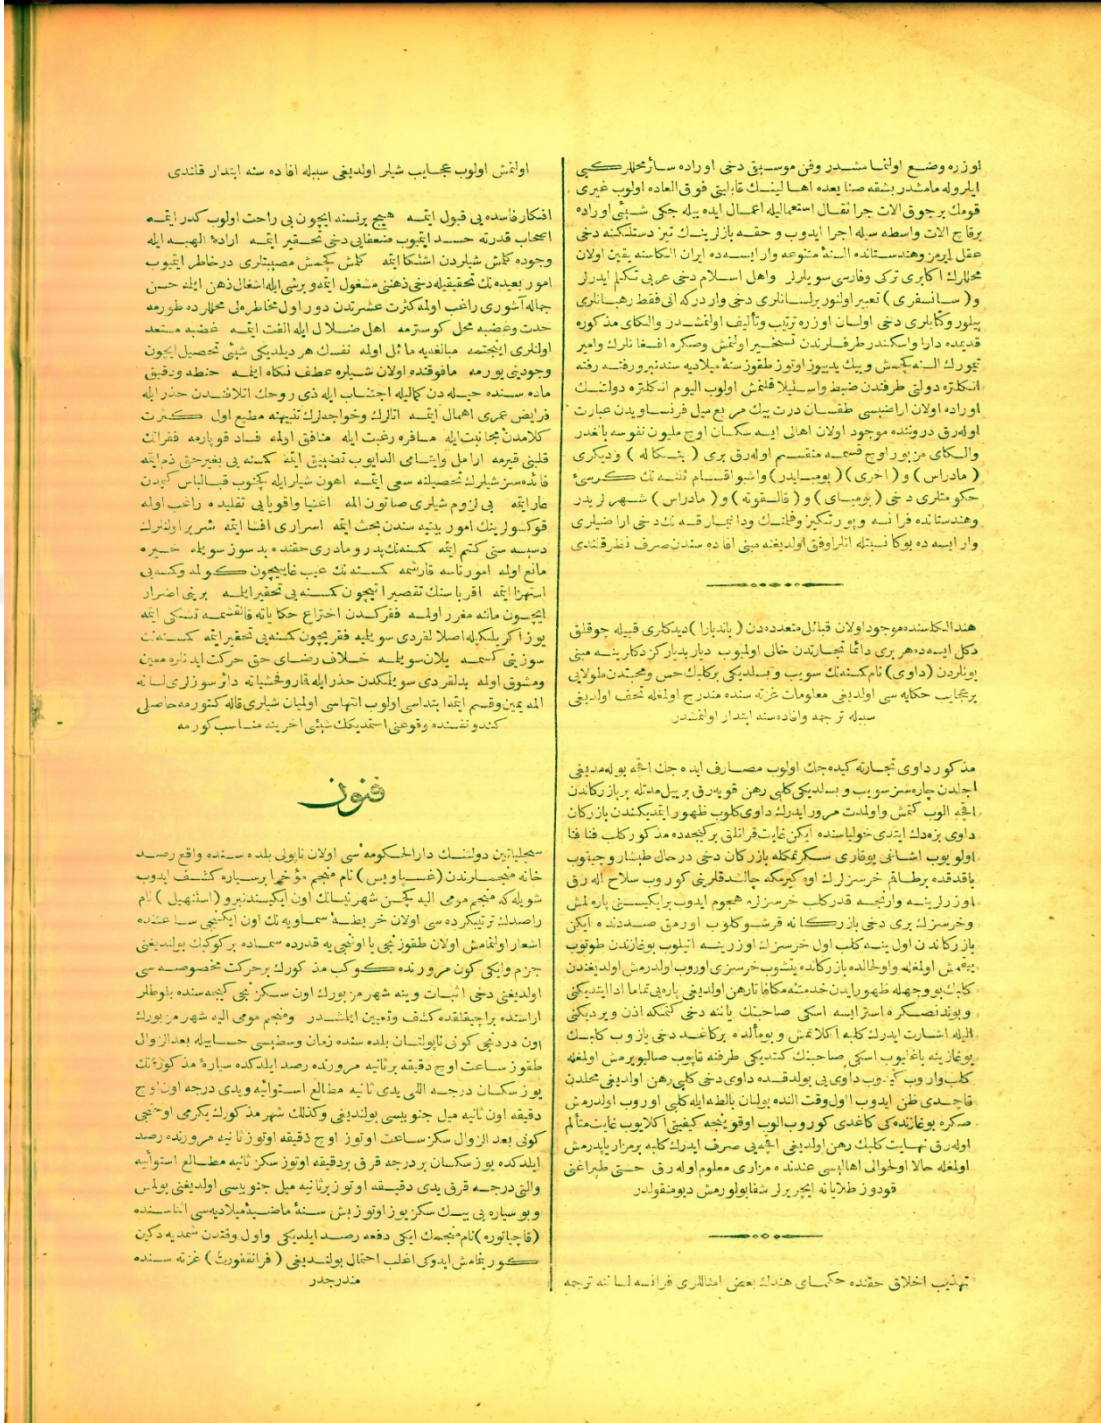 لوزره وضع اولنما مشدر وفن موسيقى دخى اوراده سائر محللر كبى
ايلروله مامشدر بشقه صنا يعده اها لينك قابليتى فوق العاده اولوب غيرى
قومك برجوق الات جرا نقال استعماليله اعمال ايده بيله جكى شيئى اوراده
برقاچ الات واسطه سيله اجرا ايدوب و حقه بازلرينك تيز دستلكنه دخى
عقل ايرمز وهندستانده السنۀ متنوعه وار ايسه ده ايران الكاسنه يقين اولان
محللرك اكابرى تركى وفارسى سويلرلر واهل اسلام دخى عربى تكلم ايدرلر
و( سانسقرى ) تعبير اولنور برلسانلرى دخى واردركه انى فقط رهبانلرى
بيلور وكتابلرى دخى اولسان اوزره ترتيب وتأليف اولنمشدر والكاى مذكوره
قديمده دارا واسكندر طرفلرندن تسخير اولنمش وصكره افغانلرك وامير
تيمورك النه كچمش وبيك يديوز اوتوز طقوز سنۀ ميلاديه سندنبرو رفته رفته
انكلتره دولتى طرفندن ضبط واستيلا قلنمش اولوب اليوم انكلتره دولتنك
اوراده اولان اراضيسى طقسان درت بيك مربع ميل فرنساويدن عبارت
اوله رق درونده موجود اولان اهالى ايسه سكسان اوچ مليون نفوسه بالغدر
والكاى مزبور اوچ قسمه منقسم اوله رق برى ( بنكاله ) وديكرى
( مادراس ) و ( اخرى ) ( بومبايدر ) واشبو اقسام ثلثه نك كرسئ
حكومتلرى دخى ( بومباى ) و ( قالقوته ) و ( مادراس ) شهرلريدر
وهندستانده فرانسه و پورتكيز وفلمنك ودانيمارقه نك دخى اراضيلرى
وار ايسه ده بوكا نسبتله انلراوفق اولديغنه مبنى افاده سندن صرف نظر قلندى
هند الكاسنده موجود اولان قبائل متعدده دن ( بانديارا ) ديدكلرى قبيله چوقلق
دكل ايسه ده هر برى دائما تجارتدن خالى اولميوب ديار بديار كزدكلرينه مبنى
بونلردن (داوى) نام كسنه نك سويب وبسلديكى بركابك حس ومحبتندن طولايى
برعجايب حكايه سى اولديغى معلومات غزته سنده مندرج اولمغله تحف اولديغى
سببله ترجمه وافاده سنه ابتدار اولنمشدر
مذكور داوى تجارته كيده جك اولوب مصارف ايده جك اقچه بوله مديغى
اجلدن چاره سز سويب وبسلديكى كلبى رهن قويه رق بر ييل مدتله بر بازركاندن
اقچه الوب كتمش واولمدت مرور ايدرك داوى كلوب ظهور ايتمديكندن بازركان
داوى بزه دك ايتدى خولياسنده ايكن غايت قرانلق بركيجه ده مذكور كلب فنا فنا
اولويوب اشاغى يوقارى سكرتمكله بازركان دخى درحال طيشار و چيقوب
باقدقده برطاقم خرسزلرك اوه كيرمكه چالشدقلرينى كوروب سلاح اله رق
اوزرلرينه وارنجه قدر كلب خرسزلره هجوم ايدوب برايكيسنى پاره لمش
وخرسزلرك برى دخى بازركانه قرشو كلوب اورمق صددنده ايكن
بازركاندن اول ينه كلب اول خرسزك اوزرينه اتيلوب بوغازندن طوتوب
ييقمش اولمغله واولحالده بازركانده يتشوب خرسزى اوروب اولدرمش اولديغندن
كلبك بو وجهله ظهور ايدن خدمتنه مكافاتا رهن اولديغى پاره يى تماما ادا ايتديكنى
وبوندنصكره استرايسه اسكى صاحبنك ياننه دخى كتمكه اذن ويرديكنى
اليله اشارت ايدرك كلبه اكلاتمش و بومآلده بركاغد دخى يازوب كلبك
بوغازينه باغلايوب اسكى صاحبنك كتديكى طرفنه قاپوب صاليويرمش اولمغله
كلب واروب كزوب داوى يى بولدقده داوى دخى كلبى رهن اولديغى محلدن
قاچدى ظن ايدوب اول وقت النده بولنان بالطه ايله كلبى اوروب اولدرمش
صكره بوغازنده كى كاغدى كوروب الوب اوقوينجه كيفيتى اكلايوب غايت متألم
اوله رق نهايت كلبك رهن اولديغى اقچه يى صرف ايدرك كلبه برمزار يابدرمش
اولمغله حالا اولحوالى اهاليسى عندنده مزارى معلوم اوله رق حتى طپراغنى
قودوز طلايانه ايچيرلر شفا بولورمش ديو منقولدر
تهذيب اخلاق حقنده حكماى هندك بعض امثاللرى فرانسه لساننه ترجمه
اولنمش اولوب عجايب شيلر اولديغى سببله افاده سنه ابتدار قلندى
افكار فاسده يى قبول ايتمه هيچ برنسنه ايچون بى راحت اولوب كدر ايتمه
اصحاب قدرته حسد ايتميوب ضعفايى دخى تحقير ايتمه ارادۀ الهيه ايله
وجوده كلمش شيلردن اشتكا ايتمه كلمش كچمش مصيبتلرى در خاطر ايتميوب
امور بعيده نك تحقيقيله دخى ذهننى مشغول ايتمه وبرشى ايله اشغال ذهن ايله حسن
جماله آشورى راغب اولمه كثرت عشرتدن دور اول مخاطره لى محللرده طورمه
حدت وغضبه محل كوسترمه اهل ضلال ايله الفت ايتمه غضبه مستعد
اولانلرى اينجتمه مبالغه يه مائل اوله نفسك هر ديلديكى شيئى تحصيل ايچون
وجودينى يورمه مافوقنده اولان شيلره عطف نكاه ايتمه حنطه ودقيق
ماده سنده حيله دن كماليله اجتناب ايله ذى روحك اتلافندن حذر ايله
فرايض عمرى اهمال ايتمه اتالرك وخواجه لرك تنبيهنه مطيع اول كثرت
كلامدن مجانبت ايله مسافره رغبت ايله منافق اولمه فساد قوپارمه فقرانك
قلبنى قيرمه ارامل وايتامى الدايوب تضييق ايتمه كسنه يى بغير حق ذم ايتمه
فائده سز شيلرك تحصيلنه سعى ايتمه اهون شيلر ايله كچنوب قبا لباس كيمدن
عار ايتمه بى لزوم شيلرى صاتون المه اغنيا واقويايى تقليده راغب اوله
قوكشولرينك امور بيتيه سندن بحث ايتمه اسرارى افشا ايتمه شرير اولانلرك
دسيسه سنى كتم ايتمه كسنه نك پدر و مادرى حقنده بد سوز سويله خيره
مانع اوله امور ناسه قارشمه كسنه نك عيب غائبيچون كوله وكسه يى
استهزا ايتمه اقرباسنك تقصيراتيچون كسنه يى تحقير ايله برينى اضرار
ايچون مالنه مغرر اولمه فقركدن اختراع حكاياته قالقشمه تشكى ايتمه
يوز آكز بلكيله اصلا لقردى سويله فقريچون كسنه يى تحقير ايتمه كسنه نك
سوزينى كسمه يلان سويله خلاف رضاى حق حركت ايدنلره معين
ومشوق اوله بد لقردى سويلمكدن حذر ايله قمار و فحشياته دائر سوزلرى لسانه
المه يمين وقسم ايتمه ابتداسى اولوب انتهاسى اولميان شيلرى قاله كتورمه حاصلى
كندو نفسنده وقوعنى استمديكك شيئى اخرينه مناسب كورمه
فنون
سجيلياتين دولتنك دار الحكومه سى اولان ناپولى بلده سنده واقع رصد
خانه منجملرندن (غسپاويس) نام منجم مؤخرا برسياره كشف ايدوب
شويله كه منجم مومى اليه كچن شهر نيسانك اون ايكيسندنبرو (استنهيل) نام
راصدك ترتيبكرده سى اولان خريطۀ سماويه نك اون ايكنجى ساعتنده
اشعار اولنمامش اولان طقوزنجى يا اوننجى يه قدرده سماده بركوكبك بولنديغنى
جزم وايكى كون مرورنده كوكب مذكورك برحركت مخصوصه سى
اولديغنى دخى اثبات وينه شهر مزبورك اون سكزنجى كيجه سنده بلوطلر
اراسنده براچيقلقده كشف وتعيين ايلمشدر ومنجم مومى اليه شهر مزبورك
اون دردنجى كونى ناپوليتان بلده سنده زمان وسطيسى حسابيله بعد ازوال
طقوز ساعت اوچ دقيقه برثانيه مرورنده رصد ايلدكده سيارۀ مذكوره نك
يوز سكسان درجه اللى يدى ثانيه مطالع استوائيه ويدى درجه اون اوچ
دقيقه اون ثانيه ميل جنوبيسى بولنديغى وكذلك شهر مذكورك يكرمى اوچنجى
كونى بعد الزوال سكز ساعت اوتوز اوچ دقيقه اوتوز ثانيه مرورنده رصد
ايلدكده يوز سكسان بر درجه قرق بر دقيقه اوتوز سكز ثانيه مطالع استوائيه
والتى درجه قرق يدى دقيقه اوتوز بر ثانيه ميل جنوبيسى اولديغنى بولمش
وبو سياره يى بيك سكز يوز اوتوز بش سنۀ ماضيۀ ميلاديه سى اثناسنده
(قاچياتوره) نام منجمك ايكى دفعه رصد ايلديكى واول وقتدن شمديه دكين
كورنمامش ايدوكى اغلب احتمال بولنديغى ( فرانقفورت ) غزته سنده
مندرجدر